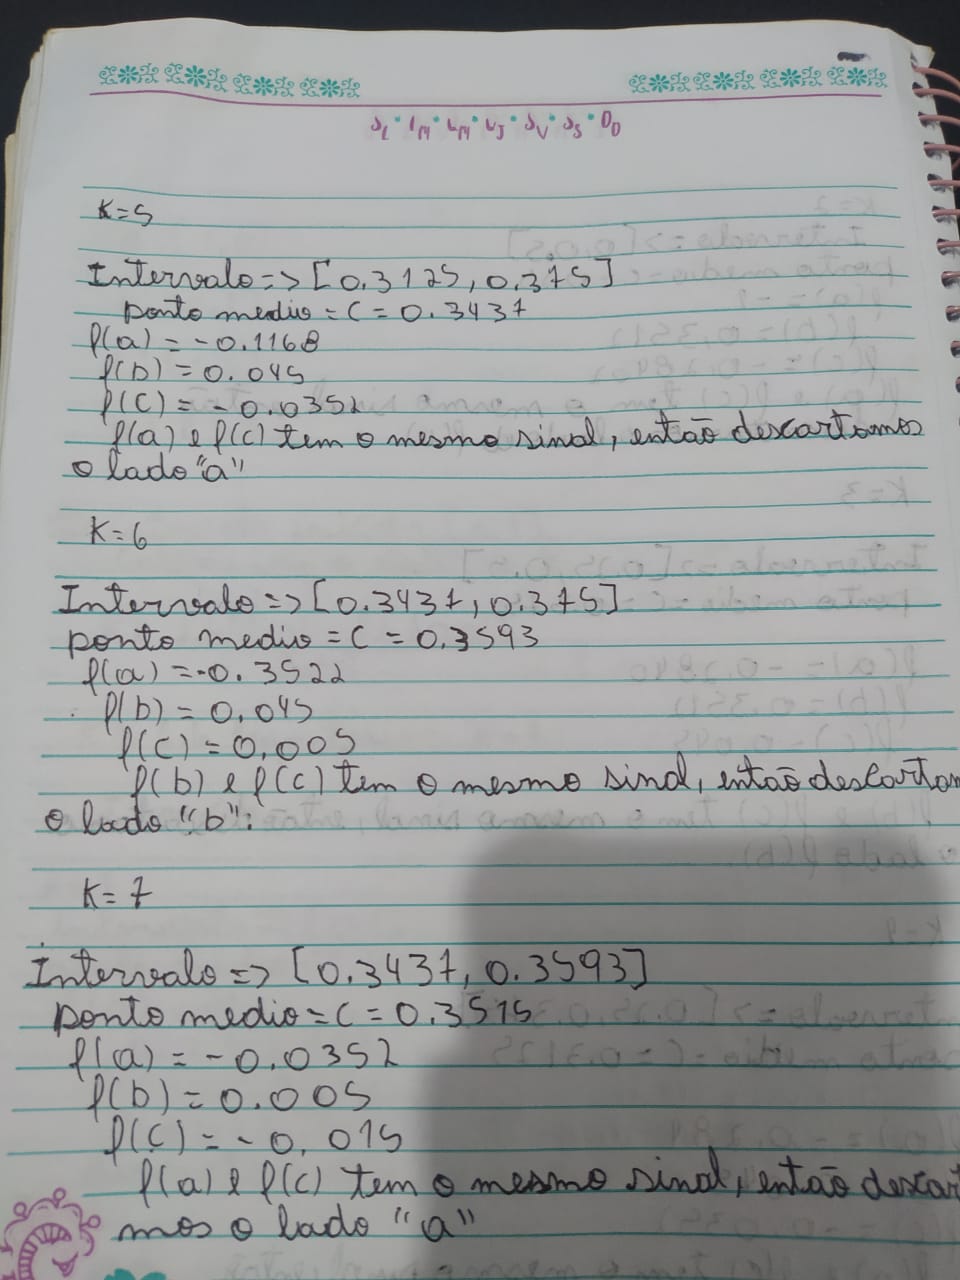 K=5
Intervalo => [0.3125, 0.375]
ponto medio = C = 0.3437
f(a) = -0.1168
f(b) = 0.045
f(c) = -0.0352
f(a) e f(c) tem o mesmo sinal, então descartamos
o lado "a"
K=6
Intervalo => [0.3437, 0.375]
ponto medio = C = 0.3593
f(a) = -0.3522
f(b) = 0.045
f(c) = 0,005
f(b) e f(c) tem o mesmo sinal, então descartam
o lado "b".
K=7
Intervalo => [0.3437, 0.3593]
ponto medio = C = 0.3515
f(a) = -0.0352
f(b) = 0.005
f(c) = -0,015
f(a) e f(c) tem o mesmo sinal, então descar
mos o lado "a"